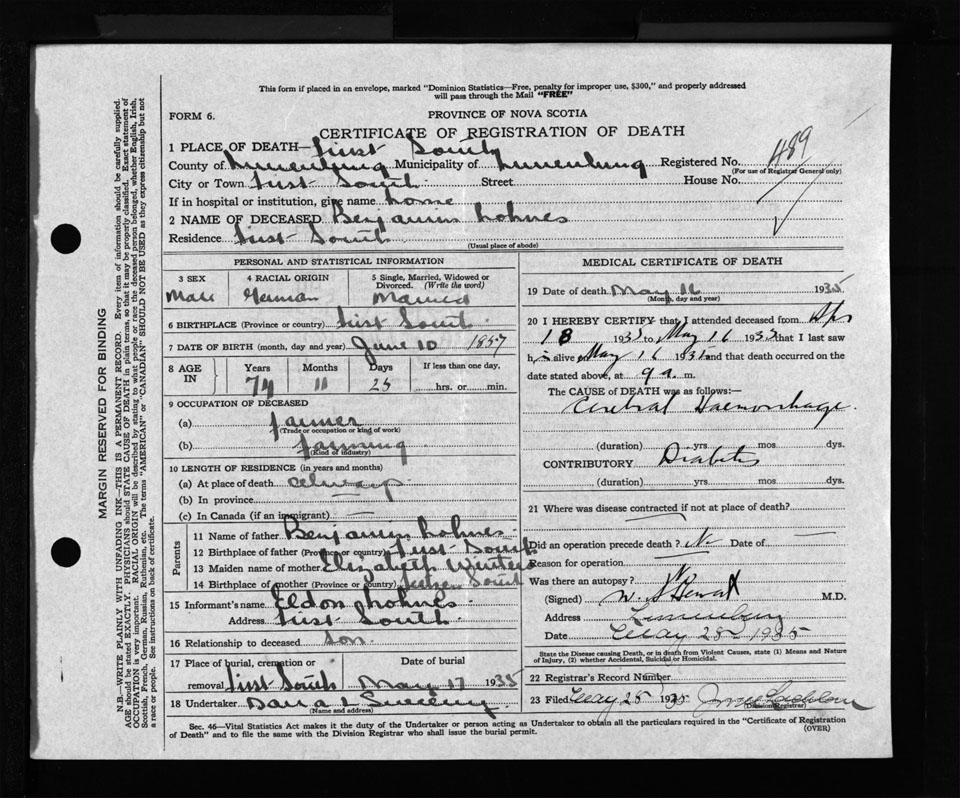 This form if placed in an envelope, marked "Dominion Statistics—Free, penalty for improper use, $300," and properly addressed
will pass through the Mail "FREE"
FORM 6.
PROVINCE OF NOVA SCOTIA
CERTIFICATE OF REGISTRATION OF DEATH
1 PLACE OF DEATH— First South
County of Lunenburg Municipality of Lunenburg Registered No. 489
(For use of Registrar General only)
City or Town First South Street House No.
If in hospital or institution, give name home
2 NAME OF DECEASED Benjamin Lohnes
Residence First South
(Usual place of abode)
PERSONAL AND STATISTICAL INFORMATION
3 SEX 4 RACIAL ORIGIN 5 Single, Married, Widowed or Divorced. (Write the word)
Male German Married
6 BIRTHPLACE (Province or country) First South
7 DATE OF BIRTH (month, day and year) June 10 1857
8 AGE IN Years Months Days If less than one day,
11 hrs. or min.
9 OCCUPATION OF DECEASED
(a) farmer
(Trade or occupation or kind of work)
(b) farming
(Kind of industry)
10 LENGTH OF RESIDENCE (in years and months)
(a) At place of death always
(b) In province
(c) In Canada (if an immigrant)
Parents
11 Name of father Benjamin Lohnes
12 Birthplace of father (Province or country) First South
13 Maiden name of mother Elizabeth
14 Birthplace of mother (Province or country) South
15 Informant's name Eldon Lohnes
Address First South
16 Relationship to deceased son
17 Place of burial, cremation or removal First South Date of burial May 17 1935
18 Undertaker
(Name and address)
MEDICAL CERTIFICATE OF DEATH
19 Date of death May 16 1935
(Month, day and year)
20 I HEREBY CERTIFY that I attended deceased from Apr
18 193 to May 16 193 that I last saw
h alive May 16 193 and that death occurred on the
date stated above, at 9 a. m.
The CAUSE OF DEATH was as follows:—
Cerebral Haemorrhage
(duration) yrs. mos. dys.
CONTRIBUTORY Diabetes
(duration) yrs. mos. dys.
21 Where was disease contracted if not at place of death?
Did an operation precede death? No Date of
Reason for operation
Was there an autopsy? N
(Signed) M.D.
Address Lunenburg
Date May 25 1935
State the Disease causing Death, or in death from Violent Causes, state (1) Means and Nature
of Injury, (2) whether Accidental, Suicidal or Homicidal.
22 Registrar's Record Number
23 Filed May 25 1935
(Division Registrar)
Sec. 46—Vital Statistics Act makes it the duty of the Undertaker or person acting as Undertaker to obtain all the particulars required in the "Certificate of Registration
of Death" and to file the same with the Division Registrar who shall issue the burial permit.
(OVER)
MARGIN RESERVED FOR BINDING
N.B.—WRITE PLAINLY WITH UNFADING INK—THIS IS A PERMANENT RECORD. Every item of information should be carefully supplied.
AGE should be stated EXACTLY. PHYSICIANS should STATE CAUSE OF DEATH in plain terms, so that it may be properly classified. Exact statement of
OCCUPATION is very important. RACIAL ORIGIN will be described by stating to what people or race the deceased person belonged, whether English, Irish,
Scottish, French, German, Russian, Ruthenian, etc. The terms "AMERICAN" or "CANADIAN" SHOULD NOT BE USED as they express citizenship but not
a race or people. See instructions on back of certificate.